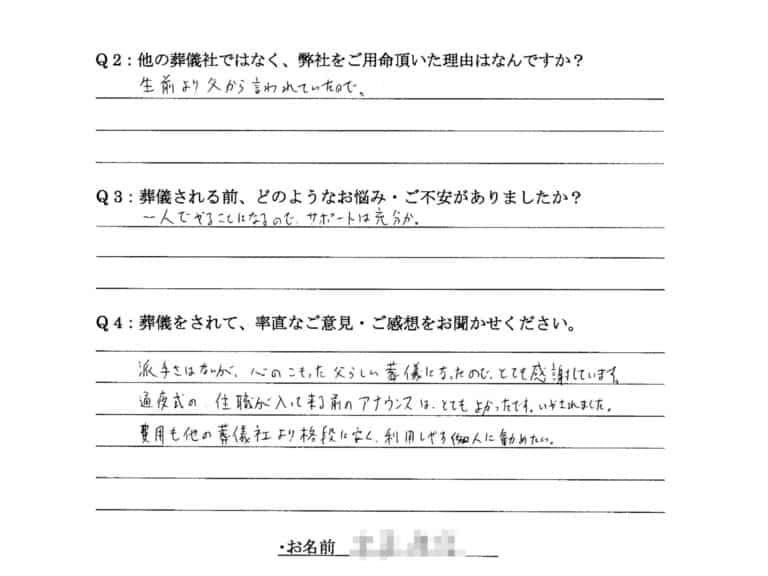 Q2:他の葬儀社ではなく、弊社をご用命頂いた理由はなんですか?
生前より父から言われていたので。
Q3:葬儀される前、どのようなお悩み・ご不安がありましたか?
一人でやることになるので、サポートは充分か。
Q4:葬儀をされて、率直なご意見・ご感想をお聞かせください。
派手さはないが、心のこもった父らしい葬儀になったので、とても感謝しています。
通夜式の、住職が入って来る前のアナウンスは、とてもよかったです。いやされました。
費用も他の葬儀社より格段に安く、利用しやすく人に勧めたい。
・お名前